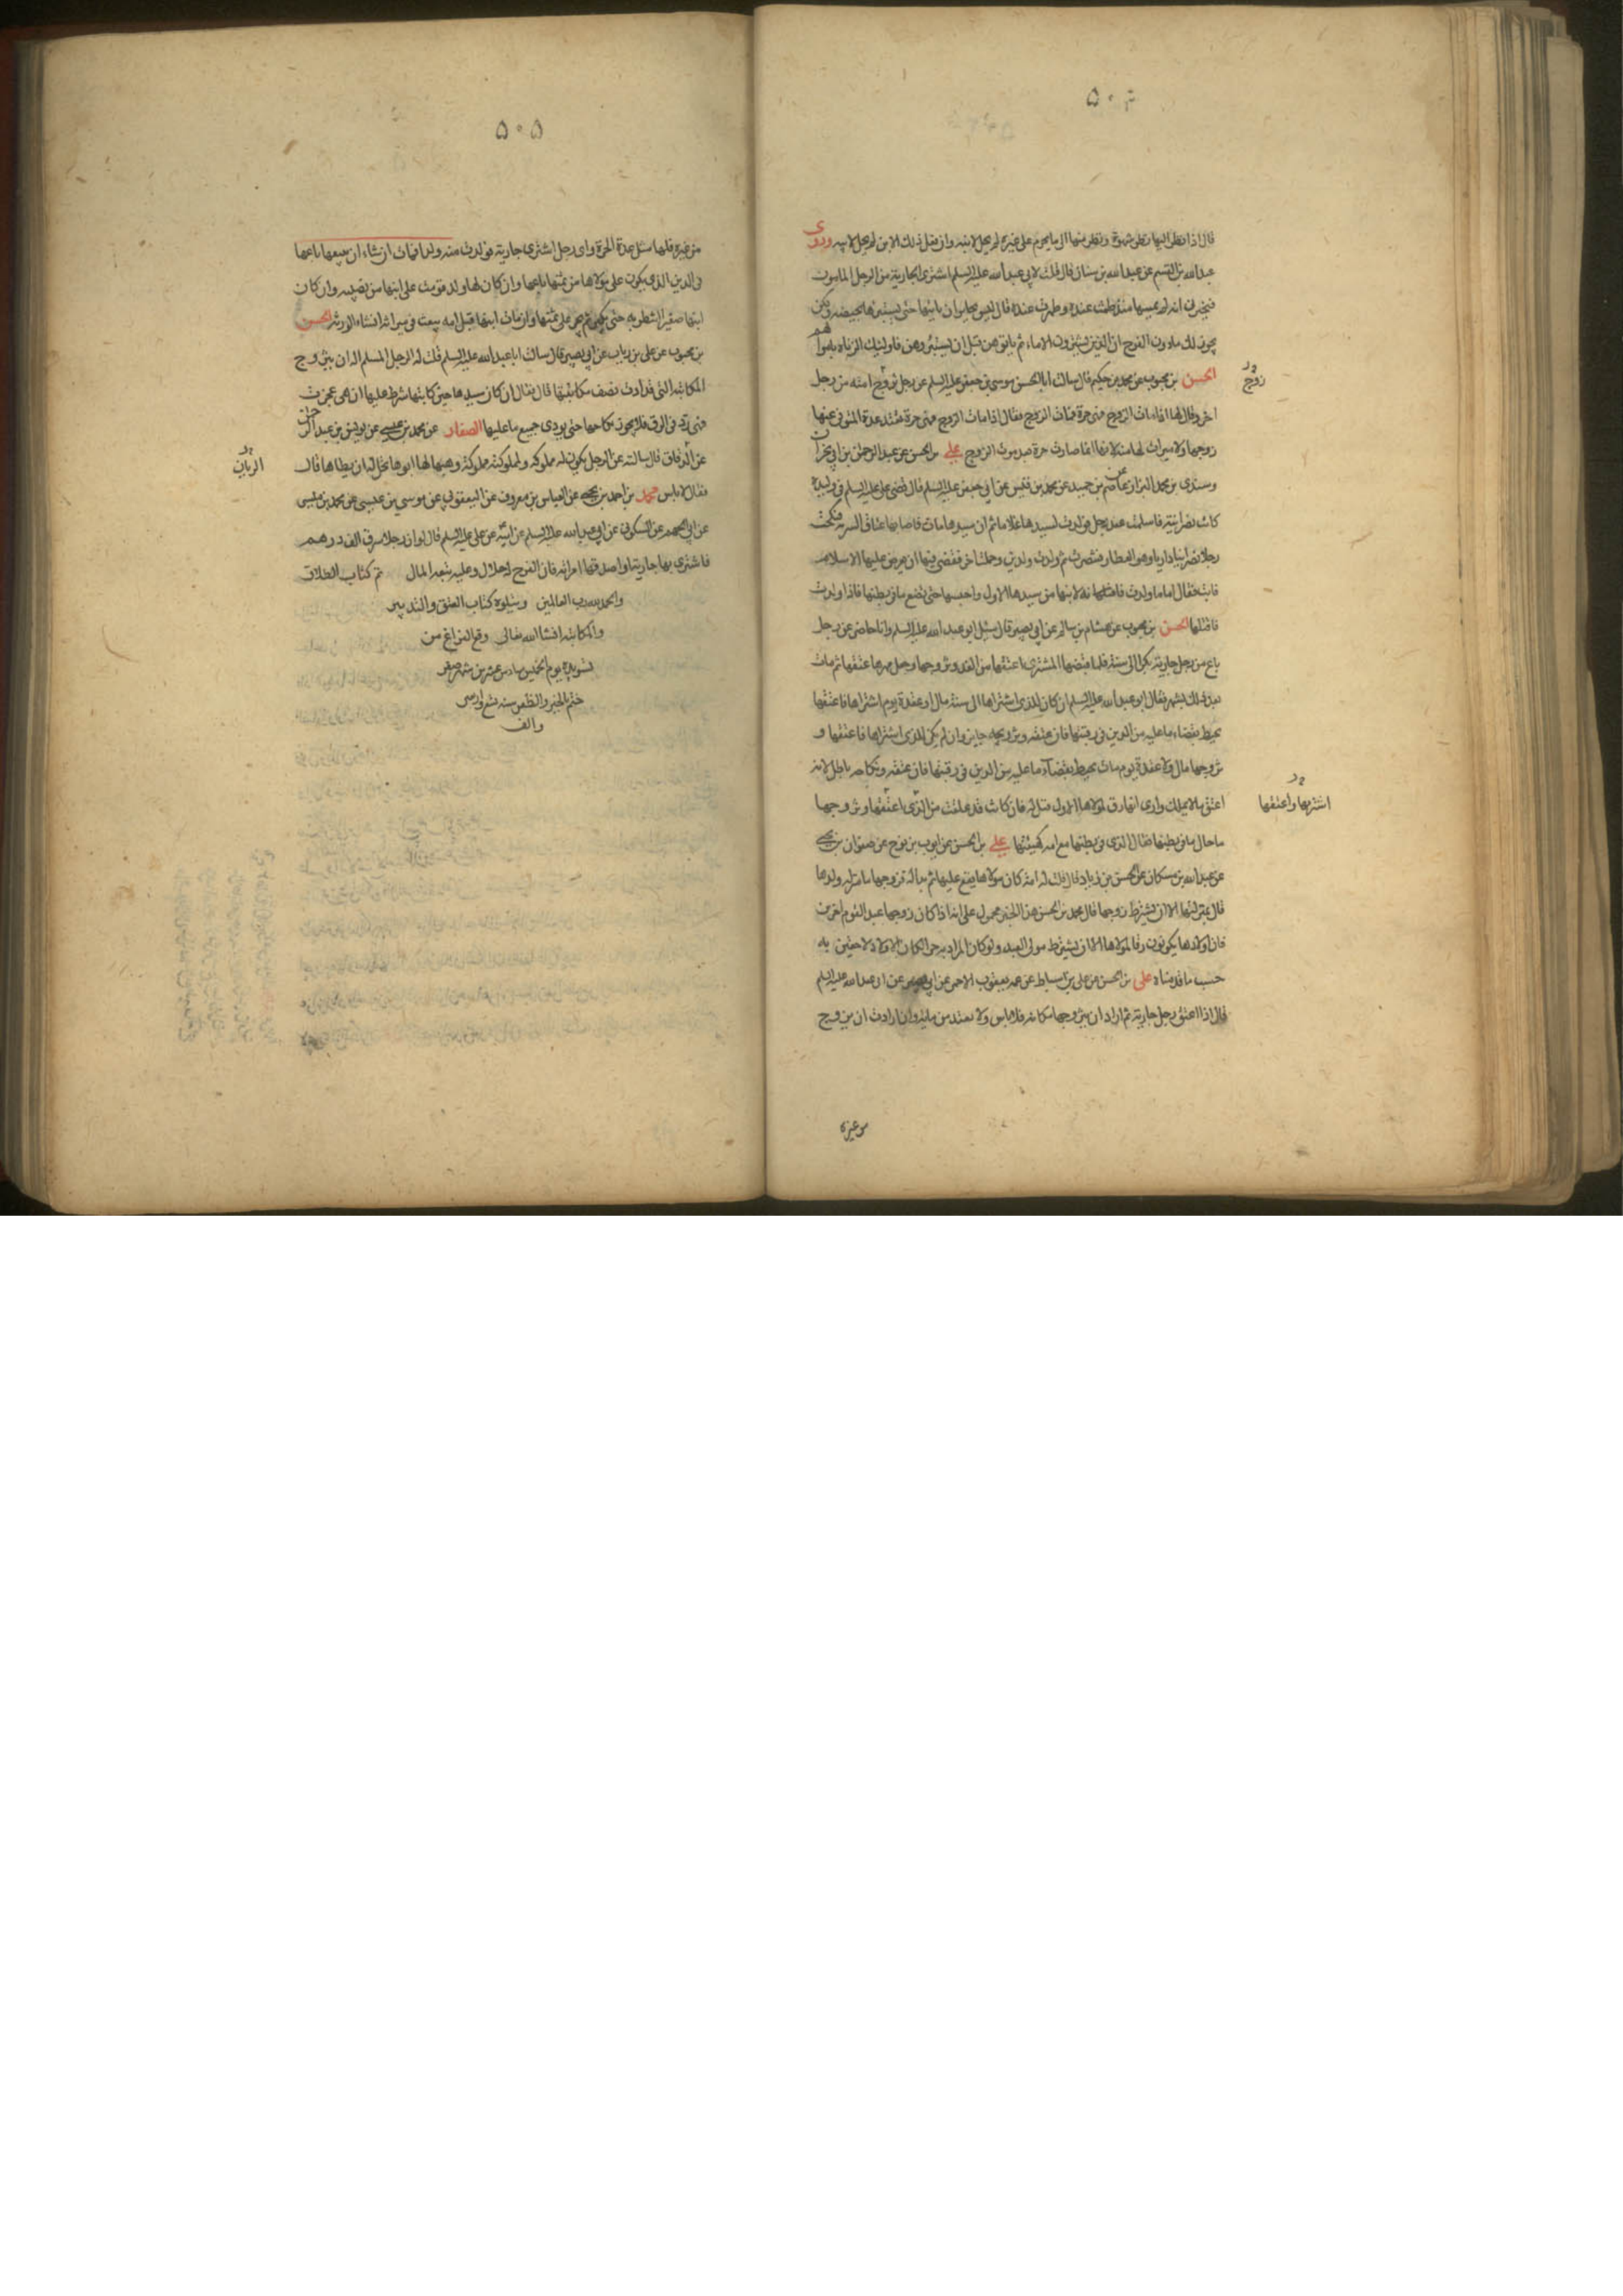 ۵۰۴
قال اذا نظر اليها نظر شهوة ونظر منها الى ما يحرم على غيره لم يحل لابنه وان فعل ذلك الابن لم يحل لابيه وروى
عبدالله بن القسم عن عبدالله بن سنان قال قلت لابي عبدالله عليه السلم اشترى الجارية من الرجل المامون
فيخبرنى انه لم يمسها منذ طمثت عنده وطهرت عنده قال ليس بجايز ان ياتيها حتى يستبرئها بحيضة ولكن
يجوز لك مادون الفرج ان الذين يشترون الاماء ثم ياتوهن قبل ان يستبرؤهن فاوليك الزناة باموالهم
الحسن بن محبوب عن محمد بن حكيم قال سالت ابا الحسن موسى بن جعفر عليه السلم عن رجل زوج امته من رجل
زوج
اخر وقال لها اذا مات الزوج فهى حرة فمات الزوج فقال اذا مات الزوج فهى حرة تعتد عدة المتوفى عنها
زوجها ولا ميراث لها منه لانها انما صارت حرة بعد موت الزوج على بن الحسن عن عبد الرحمن بن ابي نجران
وسندى بن محمد البزاز عن عاصم بن حميد عن محمد بن قيس عن ابي جعفر عليه السلم قال قضى على عليه السلم فى وليدة
كانت نصرانية فاسلمت عند رجل فولدت لسيدها غلاما ثم ان سيدها مات فاصابها عتاق السرية فنكحت
رجلا نصرانيا داريا وهو العطار فتنصرت ثم ولدت ولدين وحملت اخر فقضى فيها ان يعرض عليها الاسلام
فابت فقال اما ما ولدت فانه لابنها من سيدها الاول واحبسها حتى تضع ما فى بطنها فاذا ولدت
فاقتلها الحسن بن محبوب عن هشام بن سالم عن ابي بصير قال سئل ابو عبدالله عليه السلم وانا حاضر عن رجل
باع من رجل جارية بكرا الى سنة فلما قبضها المشترى اعتقها من الغد وتزوجها وجعل مهرها عتقها ثم مات
بعد ذلك بشهر فقال ابو عبدالله عليه السلم ان كان للذى اشتراها الى سنة مال او عقدة يوم اشتراها فاعتقها
يحيط بقضاء ما عليه من الدين فى رقبتها فان عتقه وتزويجه جايز وان لم يكن للذى اشتراها فاعتقها و
تزوجها مال ولا عقدة يوم مات يحيط بقضاء ما عليه من الدين فى رقبتها فان عتقه ونكاحه باطل لانه
اعتق ما لا يملك وارى انها رق لمولاها الاول قيل له فان كانت قد علقت من الذى اعتقها وتزوجها
اشتريها واعتقها
ما حال ما فى بطنها فقال الذى فى بطنها مع امه كهيئتها على بن الحسن عن ايوب بن نوح عن صفوان بن يحيى
عن عبدالله بن مسكان عن الحسن بن زياد قال قلت له امة كان مولاها يقع عليها ثم بدا له فزوجها ما منزلة ولدها
قال بمنزلتها الا ان يشترط زوجها قال محمد بن الحسن هذا الخبر محمول على انه اذا كان زوجها عبدا لقوم اخرين
فان اولادها يكونون رقا لمولاها الا ان يشترط مولى العبد ولو كان المراد به حرا لكان الاولاد لاحقين به
حسب ما قدمناه على بن الحسن عن على بن اسباط عن عمه يعقوب الاحمر عن ابي بصير عن ابى عبدالله عليه السلم
قال اذا اعتق رجل جاريته ثم اراد ان يتزوجها مكانه فلا باس ولا تعتد من مائه وان ارادت ان تزوج
من غيره
۵۰۵
من غيره فلها مثل عدة الحرة واى رجل اشترى جارية فولدت منه ولدا فمات ان شاء ان يبيعها باعها
فى الدين الذى يكون على مولاها من ثمنها باعها وان كان لها ولد قومت على ابنها من نصيبه وان كان
ابنها صغيرا انتظر به حتى يكبر ثم يجبر على ثمنها وان مات ابنها قبل امه بيعت فى ميراثه انشاء الورثة الحسن
بن محبوب عن على بن رئاب عن ابي بصير قال سالت ابا عبدالله عليه السلم قلت له الرجل المسلم اله ان يتزوج
المكاتبة التى قد ادت نصف مكاتبتها قال فقال ان كان سيدها حين كاتبها شرط عليها ان هى عجزت
فهى رد فى الرق فلا يجوز نكاحها حتى يودى جميع ما عليها الصفار عن محمد بن عيسى عن يونس بن عبد الرحمن
عن الرفاق قال سالته عن الرجل يكون له مملوكة ولمملوكته مملوكة وهبها لها ابوها يحل له ان يطاها قال
الريان
فقال لا باس محمد بن احمد بن يحيى عن العباس بن معروف عن اليعقوبي عن موسى بن عيسى عن محمد بن ميسر
عن ابي الجهم عن السكونى عن ابي عبدالله عليه السلم عن ابيه عن على عليه السلم قال لو ان رجلا سرق الف درهم
فاشترى بها جارية او اصدقها امراة فان الفرج له حلال وعليه تبعة المال تم كتاب الطلاق
والحمد لله رب العالمين ويتلوه كتاب العتق والتدبير
والمكاتبة انشا الله تعالى وقع الفراغ من
تسويده يوم الخميس سادس عشرين شهر صفر
ختم بالخير والظفر سنة تسع واربعين
والف